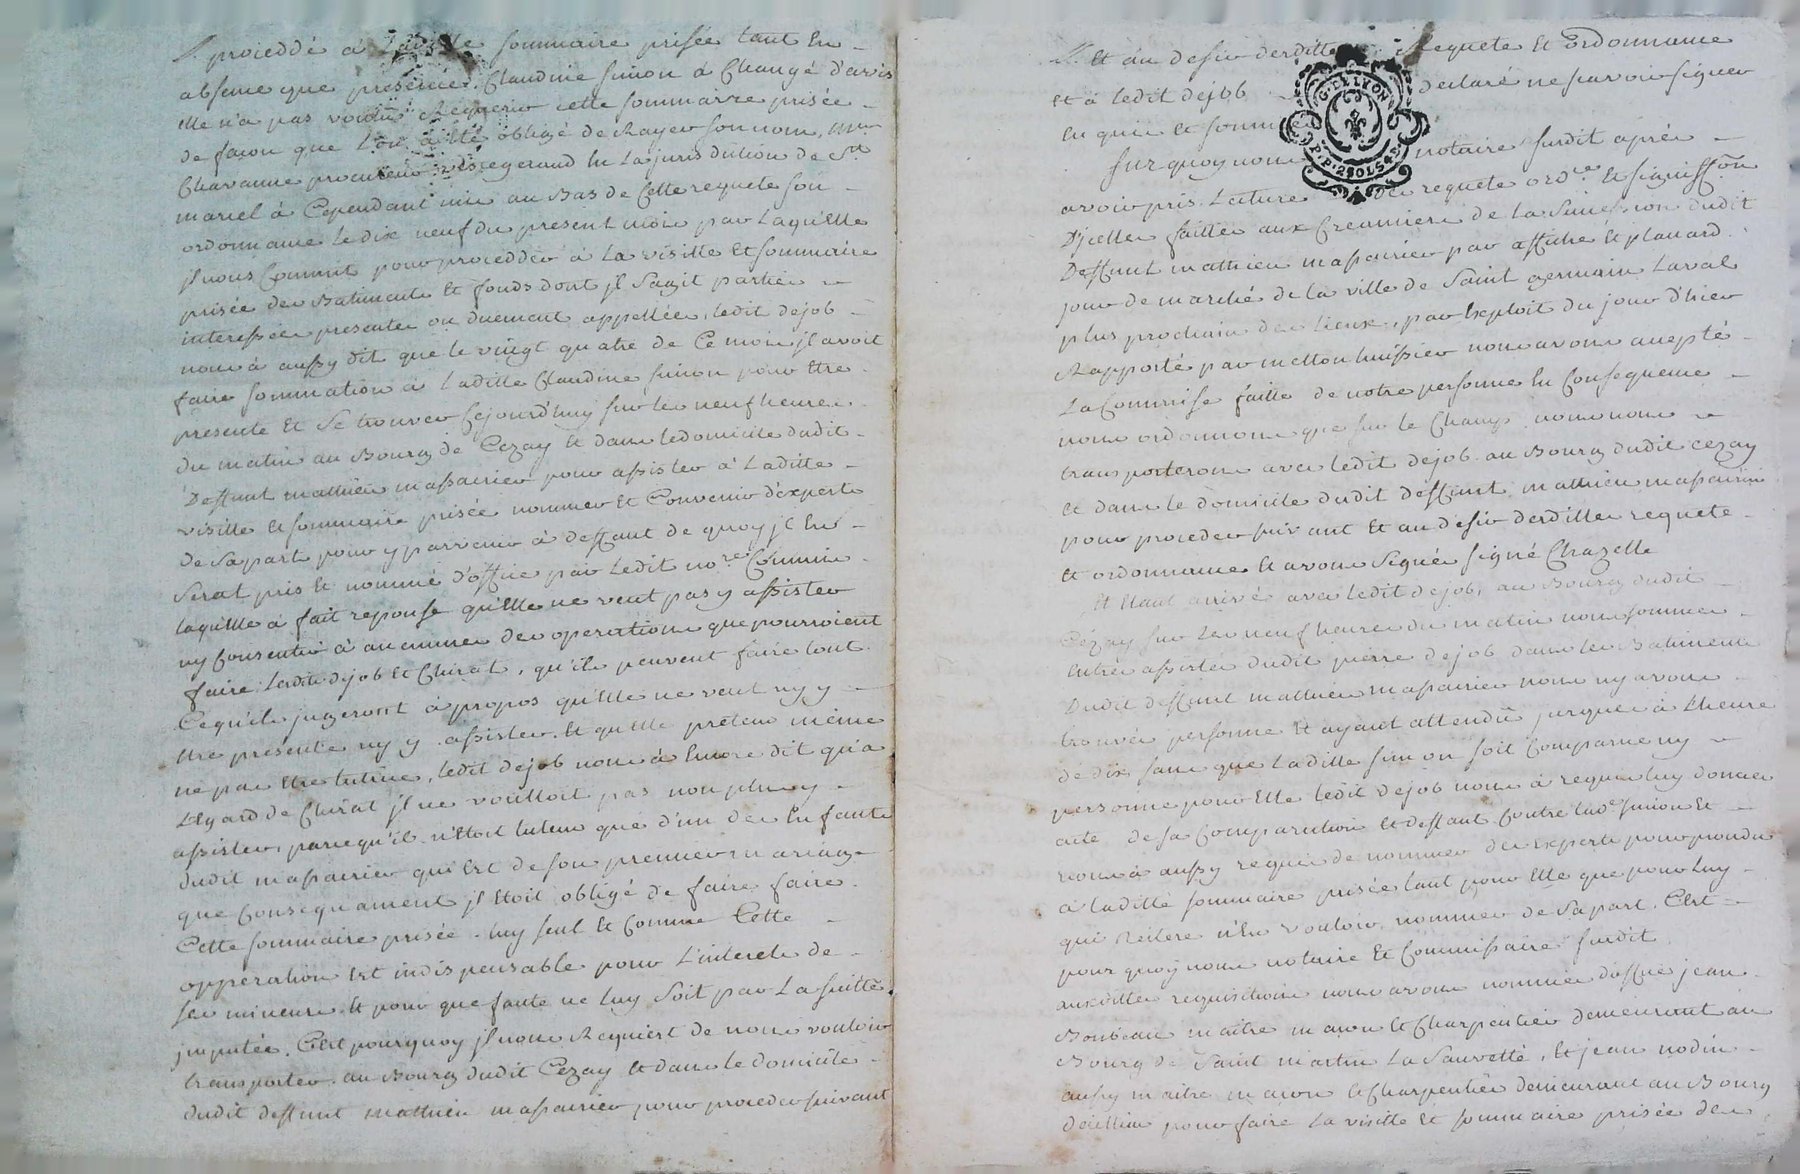 proceddé a Laditte sommaire prisée tant En
absence que presence. Claudine simon a Changé d'avis
Elle n'a pas voulu Requerir cette sommaire prisée
de facon que L'on a eté obligé de Rayer son nom,
Chavanne procureur En La jurisdition de St
marcel a Cependant mis au Bas de Cette requete son
ordonnance Le dix neuf du present mois par Laquelle
jl nous Commit pour procedder a La visitte Et sommaire
prisée des Batiments Et fonds dont jl S'agit parties
interessées presentes ou duement appellées, ledit dejob
nous a aussy dit que le vingt quatre de Ce mois jl avoit
faire sommation a Laditte Claudine simon pour Etre
presente Et Se trouver Cejourd'huy sur les neuf heures
du matin au Bourg de Cezay Et dans le domicile dudit
Deffunt mathieu massacrier pour assister a Laditte
visitte Et sommaire prisée nommer Et Convenir d'experts
de Sa part pour y parvenir a deffaut de quoy jl En
Serat pris Et nommé d'office par Ledit nore Commis
laquelle a fait reponse qu'Elle ne veut pas y assister
ny Consentir a aucunes des operations que pourroient
faire Lesdits dejob Et Chirat, qu'ils peuvent faire tout
Ce qu'ils jugeront a propos qu'Elle ne veut ny y
Etre presente ny y assister. Et qu'Elle pretend même
ne pas Etre tutrice, ledit dejob nous a Encore dit qu'a
L'Egard de Chirat jl ne voulloit pas non plus y
assister, parcequ'il n'Etoit tuteur que d'un des Enfants
dudit massacrier qui Est de son premier mariage
que Consequament jl Etoit obligé de faire faire
Cette sommaire prisée luy seul Et Comme Cette
opperation Est indispensable pour L'interets de
ses mineurs Et pour que faute ne luy Soit par La suitte
jmputée. C'Est pourquoy jl nous Requiert de nous vouloir
transporter au Bourg dudit Cezay Et dans le domicile
dudit deffunt mathieu massacrier pour proceder suivant
Et au desir desdittes Requete Et Ordonnance
Et a ledit dejob declaré ne scavoir signer
En quis Et sommé
Sur quoy nous notaire susdit aprés
avoir pris Lecture des requete ordce Et signiffon
D'jcelles faittes aux Creanciers de La Succession dudit
Deffunt mathieu massacrier par affiche Et placcard
jour de marché de la ville de Saint germain Laval
plus prochain des Lieux, par Exploit du jour d'hier
Rapporté par metton huissier nous avons accepté
La Commise faitte de notre personne En Consequence
nous ordonnons que sur le Champ nous nous
transporterons avec ledit dejob au Bourg dudit cezay
Et dans le domicile dudit deffunt mathieu massacrier
pour proceder suivant Et au desir desdittes requete
Et ordonnance Et avons Signé signé Chazelle
Et Etant arrivé avec ledit dejob, au Bourg dudit
Cézay sur Les neuf heures du matin nous sommes
Entrés assistés dudit pierre dejob dans les Batiments
Dudit deffunt mathieu massacrier nous ny avons
trouvés personne Et ayant attendü jusques a L'heure
de dix sans que Laditte simon soit Comparue ny
personne pour Elle ledit dejob nous a requis luy donner
acte de sa Comparution Et deffaut Contre lade simon Et
nous a aussy requis de nommer des Experts pour proceder
a laditte sommaire prisée tant pour Elle que pour luy
qui Reitere n'En vouloir nommer de Sa part. C'Est
pour quoy nous notaire Et Commissaire susdit
auxdittes requisitions nous avons nommés d'office jean
maitre macon Et Charpentier demeurant au
Bourg de Saint martin La Sauvetté, Et jean nodin
aussy maitre macon Et Charpentier demeurant au Bourg
pour faire La visitte Et sommaire prisée des
G. DE LYON